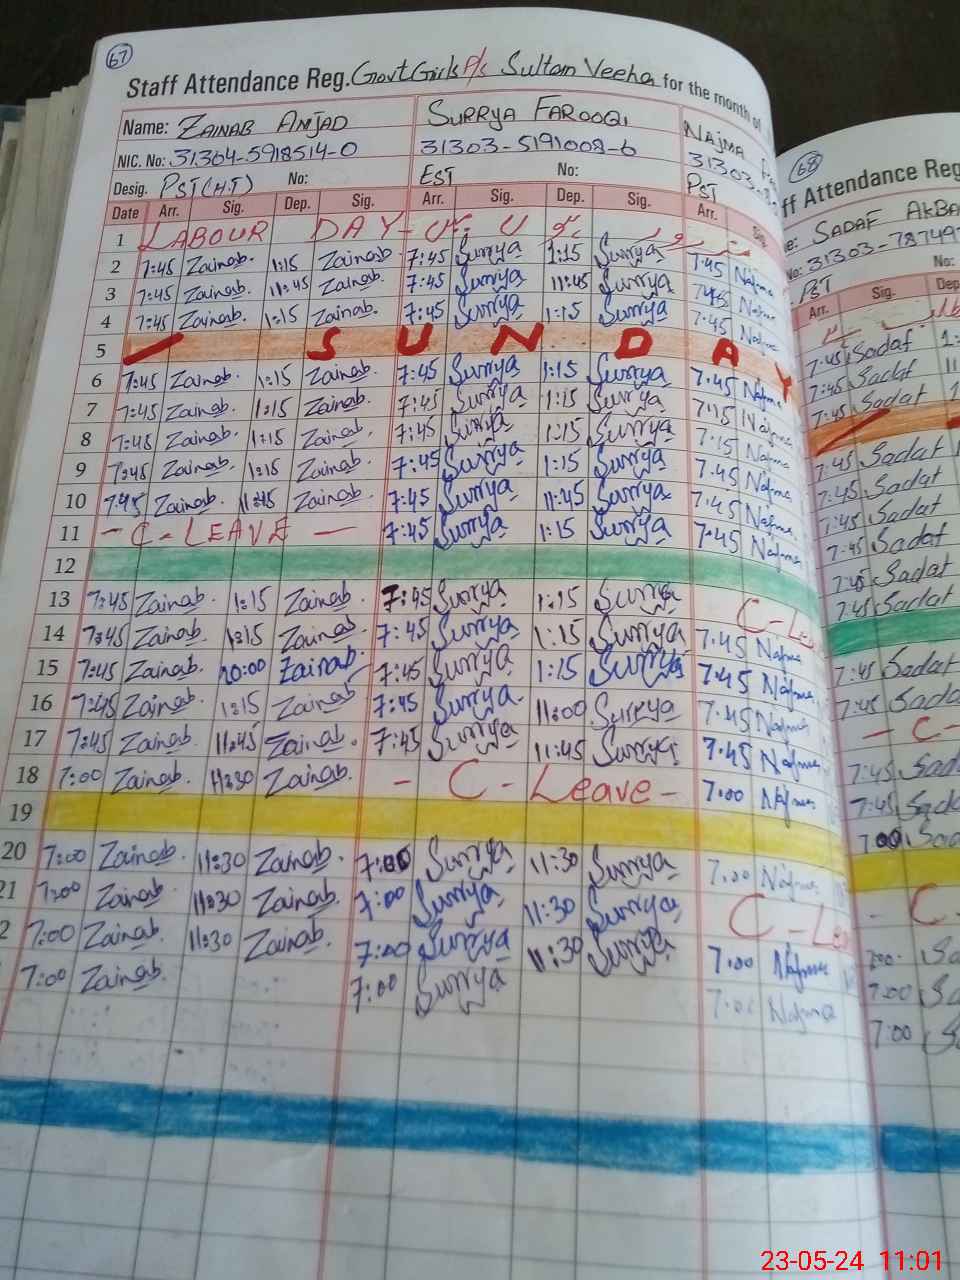 67
Staff Attendance Reg. Govt Girls P/s Sultan Veeha for the month of
Name: ZAINAB AMJAD SURRYA FAROOQI NAJMA
NIC. No: 31304-5918514-0 31303-5191008-6 31303-8
Desig. PST(H.T) No: EST No: PST
Date Arr. Sig. Dep. Sig. Arr. Sig. Dep. Sig. Arr. Sig.
1 LABOUR DAY-
2 7:45 Zainab. 1:15 Zainab 7:45 Surrya 1:15 Surrya 7:45 Najma
3 7:45 Zainab. 11:45 Zainab. 7:45 Surrya 11:45 Surrya 7:45 Najma
4 7:45 Zainab. 1:15 Zainab. 7:45 Surrya 1:15 Surrya 7:45 Najma
5 S U N D A Y
6 7:45 Zainab. 1:15 Zainab. 7:45 Surrya 1:15 Surrya 7.45 Najma
7 7:45 Zainab. 1:15 Zainab. 7:45 Surrya 1:15 Surrya 7:15 Najma
8 7:45 Zainab. 1:15 Zainab. 7:45 Surrya 1:15 Surrya 7:15 Najma
9 7:45 Zainab. 1:15 Zainab. 7:45 Surrya 1:15 Surrya 7.45 Najma
10 7:45 Zainab. 11:45 Zainab. 7:45 Surrya 11:45 Surrya 7.45 Najma
11 - C - LEAVE - 7:45 Surrya 1:15 Surrya 7.45 Najma
12
13 7:45 Zainab. 1:15 Zainab. 7:45 Surrya 1:15 Surrya C-Leav
14 7:45 Zainab. 1:15 Zainab 7:45 Surrya 1:15 Surrya 7.45 Najma
15 7:45 Zainab. 10:00 Zainab 7:45 Surrya 1:15 Surrya 7.45 Najma
16 7:45 Zainab. 1:15 Zainab 7:45 Surrya 11:00 Surrya 7.45 Najma
17 7:45 Zainab. 11:45 Zainab. 7:45 Surrya 11:45 Surrya 7.45 Najma
18 7:00 Zainab. 11:30 Zainab. - C - Leave - 7.00 Najma
19
20 7:00 Zainab. 11:30 Zainab. 7:00 Surrya 11:30 Surrya 7.00 Najma
21 7:00 Zainab. 11:30 Zainab. 7:00 Surrya 11:30 Surrya C - Lea
2 7:00 Zainab. 11:30 Zainab. 7:00 Surrya 11:30 Surrya 7.00 Najma
7:00 Zainab. 7:00 Surrya 7.00 Najma
68
ff Attendance Reg
e: SADAF AKBA
No: 31303-78749
PST No:
Arr. Sig. Dep
7:45 Sadaf 1:
7:45 Sadaf 11
7:45 Sadaf 1
7:45 Sadaf
7:45 Sadaf
7:45 Sadaf
7:45 Sadaf
7:45 Sadaf
7:45 Sadaf
7:45 Sadaf
7:45 Sada
- C -
7:45 Sad
7:45 Sada
7:00 Sa
- C -
7:00 Sa
7:00 Sa
7:00 S
23-05-24 11:01